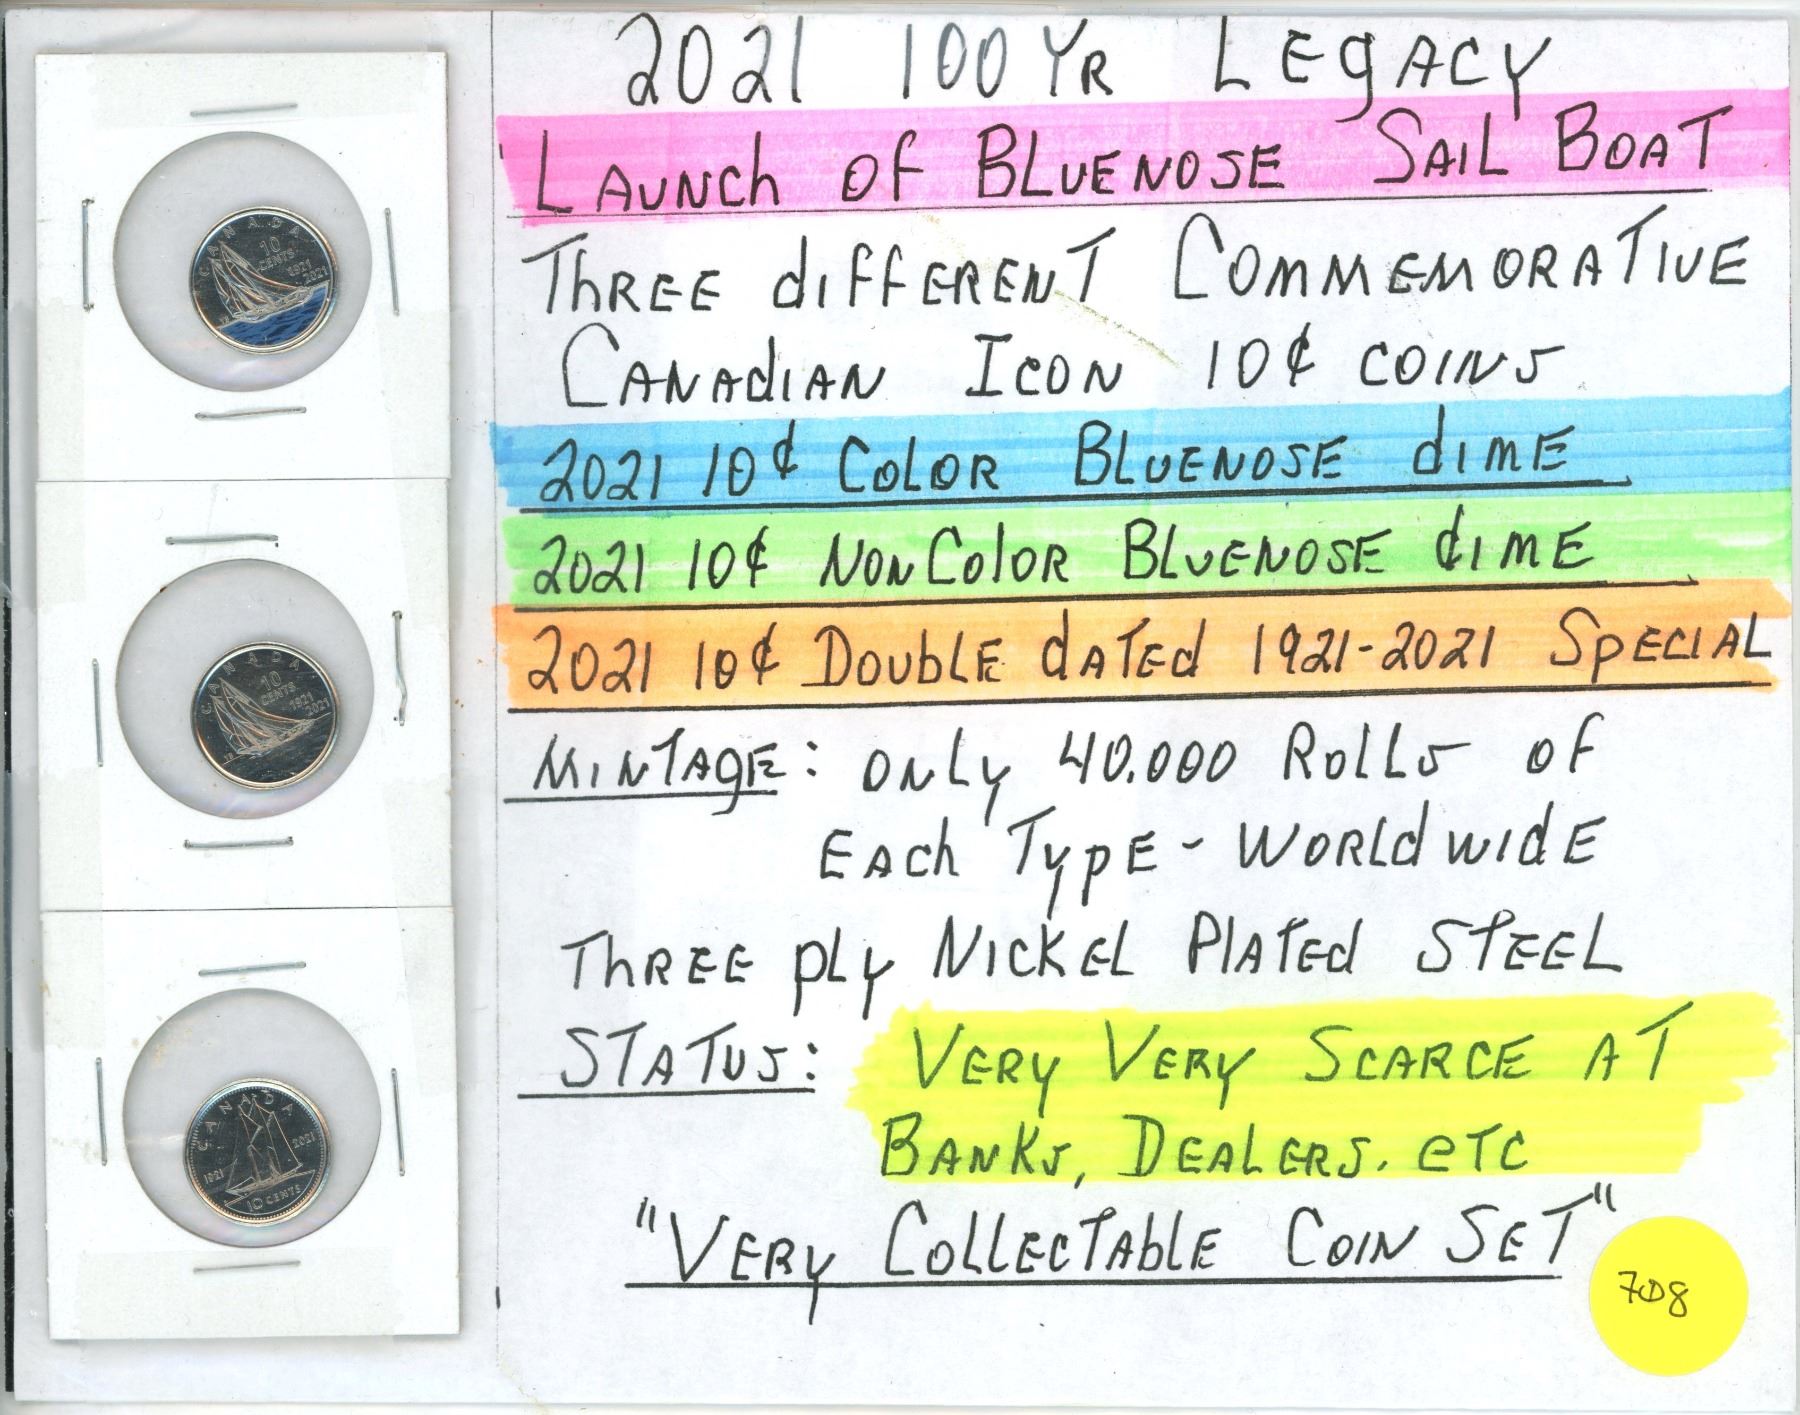 2021 100 YR LEGACY
LAUNCH OF BLUENOSE SAIL BOAT
THREE DIFFERENT COMMEMORATIVE
CANADIAN ICON 10¢ COINS
2021 10¢ COLOR BLUENOSE DIME
2021 10¢ NONCOLOR BLUENOSE DIME
2021 10¢ DOUBLE DATED 1921-2021 SPECIAL
MINTAGE: ONLY 40.000 ROLLS OF
EACH TYPE - WORLDWIDE
THREE PLY NICKEL PLATED STEEL
STATUS: VERY VERY SCARCE AT
BANKS, DEALERS. ETC
"VERY COLLECTABLE COIN SET"
708
CANADA
10
CENTS
1921
2021
CANADA
10
CENTS
1921
2021
CANADA
2021
1921
10 CENTS